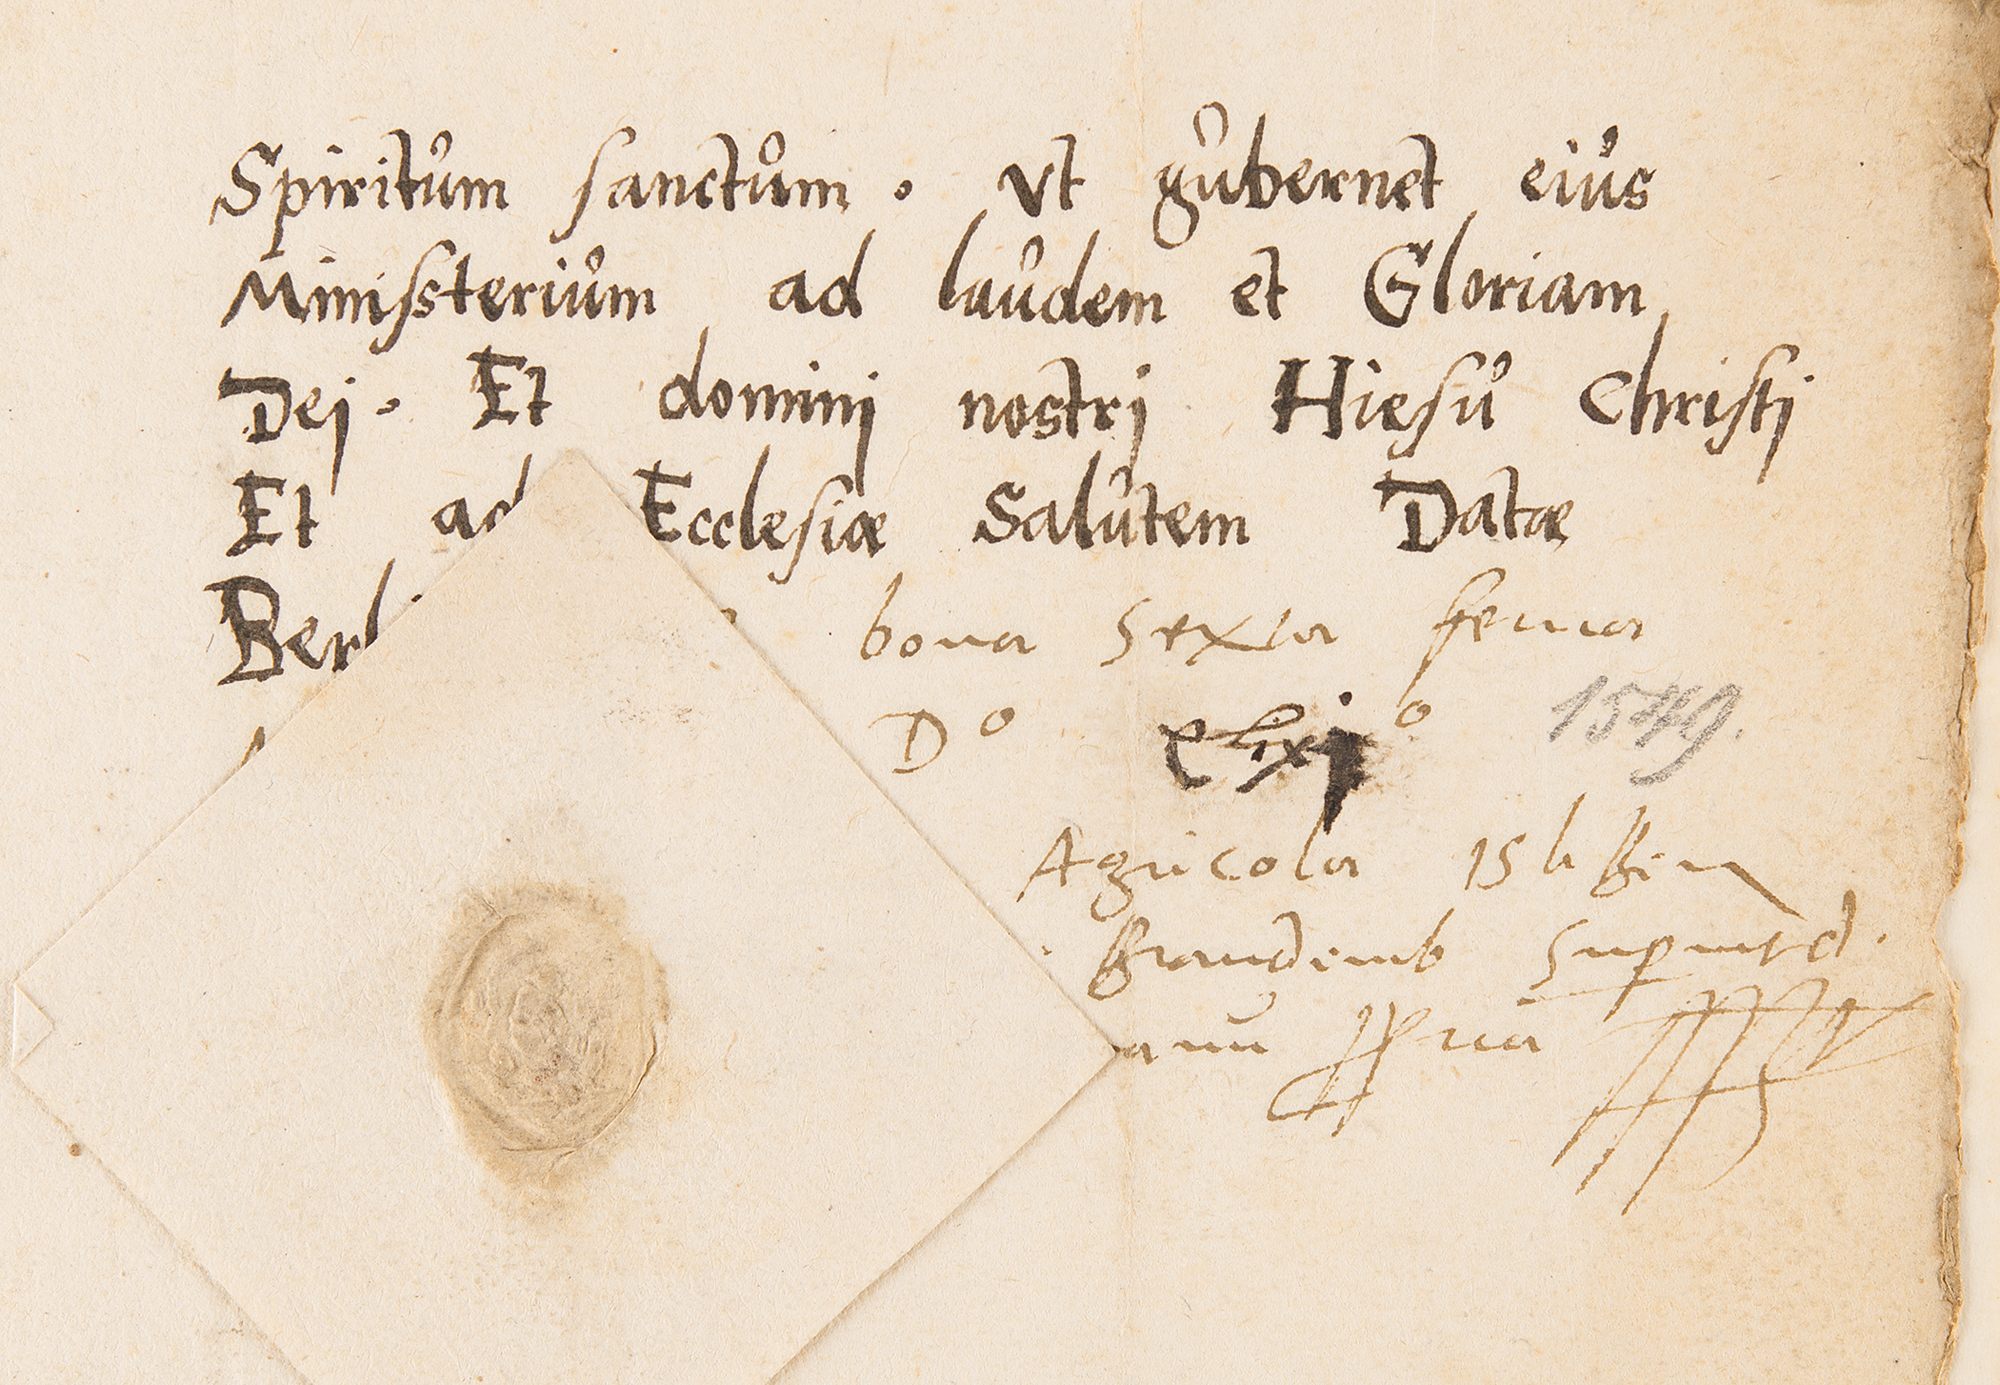 Spiritum sanctum. Vt gubernet eius
Ministerium ad laudem et Gloriam
Dej. Et dominj nostrj Hiesu Christj
Et ad Ecclesiæ Salutem Datæ
Berl bona sexta feria
D° xlix° 1549.
Agricola Isleben
Brandenb Superinted.
anu ppria